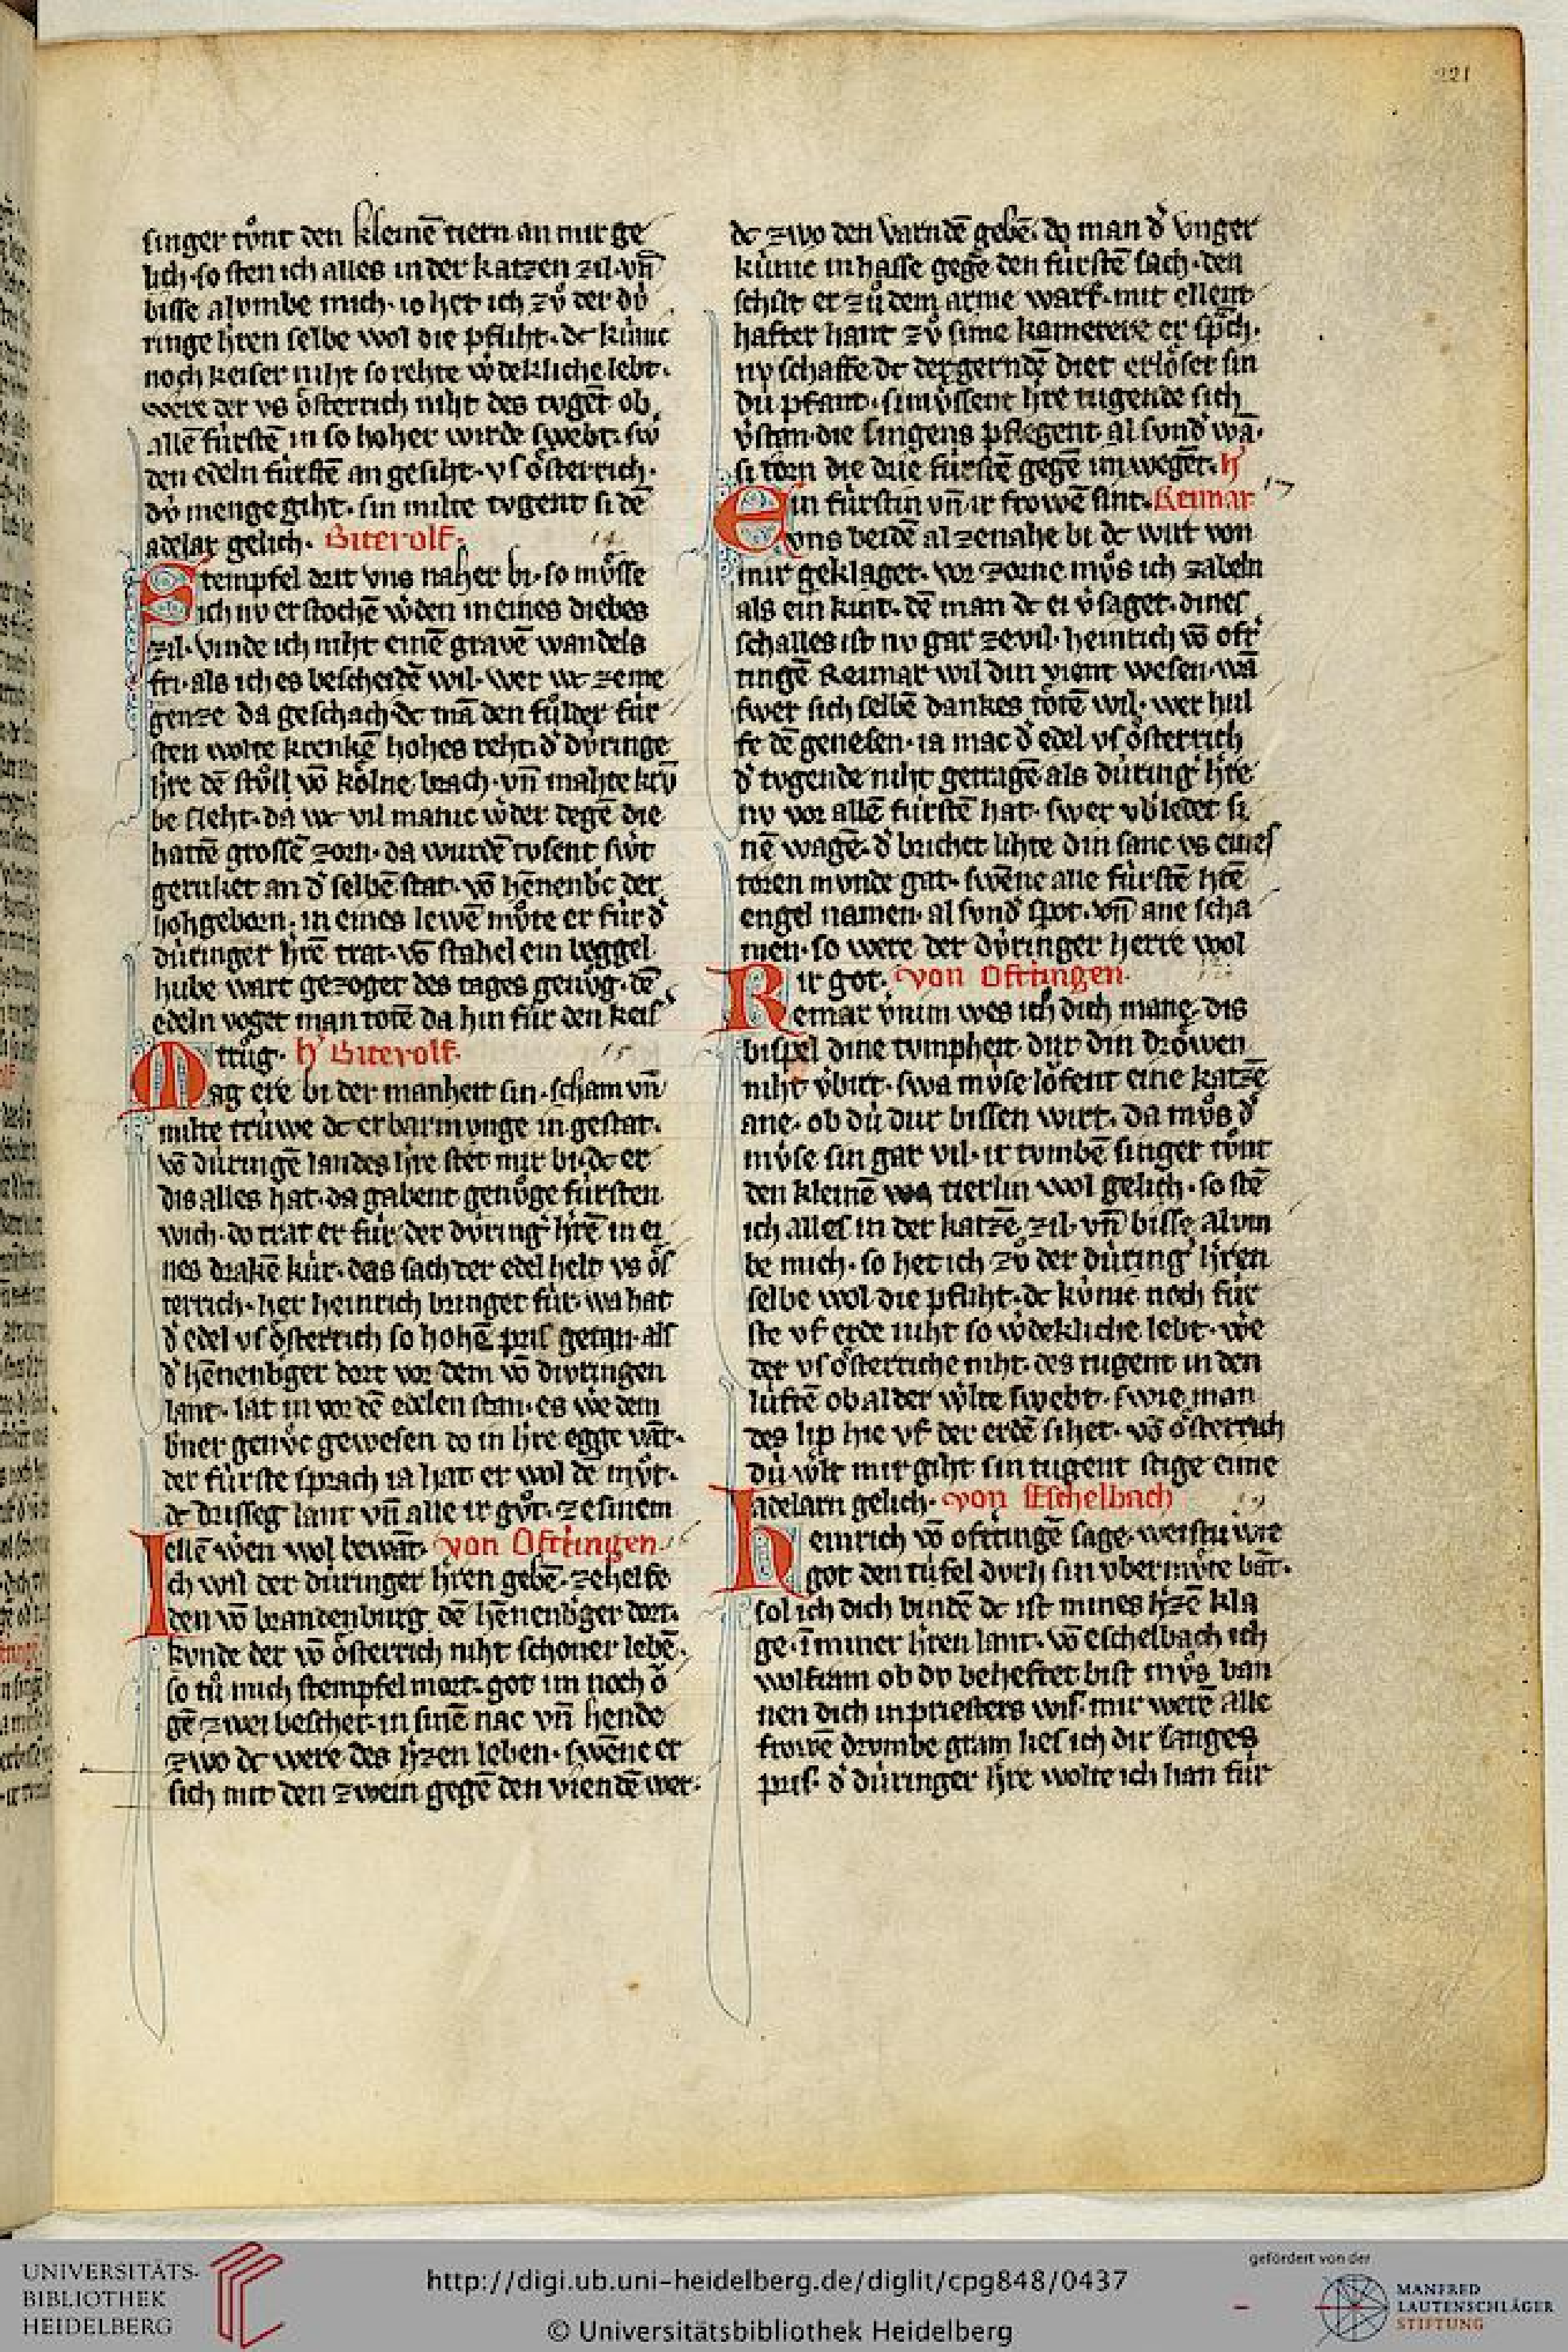 221
singer toͤnt den kleinē tiern an mir ge
lich· so sten ich alles in der katzen zil· vn̄
bisse al vmbe mich· io het ich zvͦ der dv́
ringe h̄ren selbe wol die pfliht· dc kúnic
noch keiser niht so rehte wͦdekliche lebt·
were der vs oͤsterrich niht des tvgēt ob
allē fúrstē in so hoher wirde swebt· sw
den edeln fúrstē an gesiht· vs oͤsterrich·
dv́ menge giht· sin milte tvgent si dē
adelar gelich· Biterolf· 14
Stempfel drit vns naher bi· so mvͤsse
ich nv erstochē wͦden in eines diebes
zil· vinde ich niht einē gravē wandels
fri· als ich es bescheidē wil· wer wc ze me
genze da geschach dc mā den fulder fúr
sten wolte krenkē hohes reht· dͦ dv́ringe
h̄re dē stoͤll vō kölne brach· vn̄ mahte krv̄
be sleht· da wc vil manic wͦder degē die
hattē grossē zorn· da wurdē tvsent swͦt
geruket an dͦ selbē stat· vō hēnenb͛c der
hohgeborn· in eines lewē mvͦte er fúr dͦ
dúringer h̄rē trat· vō stahel ein beggel
hube wart gezoget des tages genvͦg· dē
edeln voget man totē da hin fúr den keis͛
trúg· h͛ Biterolf· 15
Mag ere bi der manheit sin· scham vn̄
milte trúwe dc erbarmvnge in gestat·
vō dúringē landes h̄re stet mir bi· dc er
dis alles hat· da gabent genvͦge fúrsten
wich· do trat er fúr der dv́ring͛ h̄rē in ei
nes drakē kúr· das sach der edel helt vs oͤs
terrich· her heinrich bringet fúr· wa hat
dͦ edel vs oͤsterrich so hohē pris getan· als
dͦ hēnenb͛ger dort vor dem vō dv́ringen
lant· lat in vor dē edelen stan· es we dem
b͛ner genvͦc gewesen do in h̄re egge vāt·
der fúrste sprach ia hat er wol dē mvͦt·
dc drisseg lant vn̄ alle ir gvͦt· ze sinem
ellē wͦen wol bewāt· von Oftringen· 16
Ich wil der dúringer h̄ren gebē· ze helfe
den vō brandenburg dē hēnenb͛ger dort·
kvnde der vō oͤsterrich niht schoner lebē·
so tuͦ mich stempfel mort· got im noch oͮ
gē zwei bescher· in sinē nac vn̄ hende
zwo dc were des h̄zen leben· swēne er
sich mit den zwein gegē den viendē wer·
dc zwo den varndē gebē· do man dͦ vnger
kúnic in hasse gegē den fúrstē sach· den
schilt er zuͦ dem arme warf· mit ellent
hafter hant zvͦ sime kamerere er sp̄ch·
nv schaffe dc der gerndē diet erloͤset sin
dú pfant· si mvͤssent h̄re tugende sich
v͛stan· die singens pflegent· al sond͛ wā·
si torn die drie fúrstē gegē im weget· h͛
Ein fúrstin vn̄ ir frowē sint· Reimar 17
vns beidē al ze nahe bi dc wirt von
mir geklaget· vor zorne mvͦs ich zabeln
als ein kint· dē man dc ei v͛saget· dines
schalles ist nv gar ze vil· heinrich vō oft͛
tingē Reimar wil din vient wesen· wā
swer sich selbē dankes toͤtē wil· wer hul
fe dē genesen· ia mac dͦ edel vs oͤsterrich
dͦ tvgende niht getragē als dúring͛ h̄re
nv vor allē fúrstē hat· swer vb͛ledet si
nē wagē· dͦ brichet lihte din sanc vs eines
toren mvnde gat· swēne alle fúrstē h̄tē
engel namen· al sond͛ spot· vn̄ ane scha
men· so were der dv́ringer herre wol
ir got· von Oftringen· 18
Reimar v͛nim wes ich dich mane· dis
bispel dine tvmpheit dur din droͤwen
niht v͛birt· swa mv́se loͤfent eine katzē
ane· ob dú dur bissen wirt· da mvͦs dͦ
mv́se sin gar vil· ir tvmbē singer toͤnt
den kleinē tierlin wol gelich· so stē
ich alles in der katzē zil· vn̄ bisse al vm
be mich· so het ich zvͦ der dúring͛ h̄ren
selbe wol die pfliht· dc kúnic noch fúr
ste vf erde niht so wͦdekliche lebt· we
der vs oͤsterriche niht· des tugent in den
lúftē ob al der wͦlte swebt· swie man
des lip hie vf der erdē sihet· vō oͤsterrich
dú wͦlt mir giht sin tugent stige eime
adelarn gelich· von Eschelbach 19
heinrich vō oftringē sage· weistu wie
got den túfel dvrh sin vbermvͤte bāt·
sol ich dich bindē dc ist mines h̄zē kla
ge· ī miner h̄ren lant· vō eschelbach ich
wolfram ob dv beheftet bist mvͦs ban
nen dich in priesters wis· mir werē alle
frowē drvmbe gram lies ich dir sanges
pris· dͦ dúringer h̄re wolte ich han fúr
UNIVERSITÄTS-
BIBLIOTHEK
HEIDELBERG
http://digi.ub.uni-heidelberg.de/diglit/cpg848/0437
© Universitätsbibliothek Heidelberg
gefördert von der
MANFRED
LAUTENSCHLÄGER
STIFTUNG